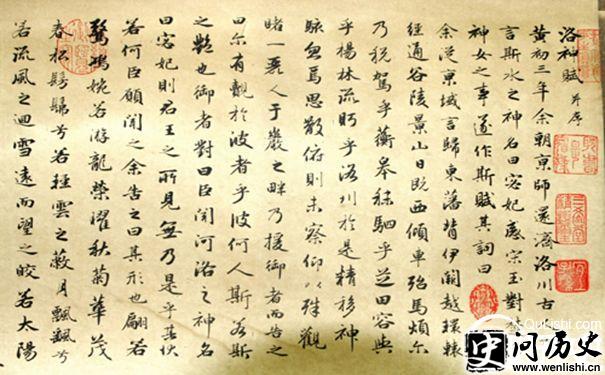 洛神賦 并序
黃初三年余朝京師還濟洛川古
言斯水之神名曰宓妃感宋玉對楚
神女之事遂作斯賦其詞曰
余從京域言歸東藩背伊闕越轘轅
經通谷陵景山日既西傾車殆馬煩尔
乃稅駕乎蘅皋秣駟乎芝田容與
乎楊林流眄乎洛川於是精移神
駭忽焉思散俯則未察仰以殊觀
睹一麗人于巖之畔乃援御者而告之
曰尓有覿於彼者乎彼何人斯若斯
之艷也御者對曰臣聞河洛之神名
曰宓妃則君王之所見無乃是乎其狀
若何臣願聞之余告之曰其形也翩若
驚鴻婉若游龍榮曜秋菊華茂
春松髣髴兮若輕雲之蔽月飄飄兮
若流風之迴雪遠而望之皎若太陽
QuLishi.com
问历史
www.wenlishi.cn